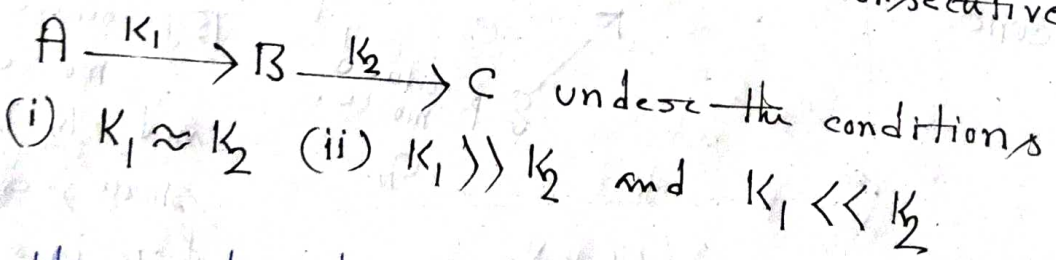 A K₁ → B K₂ → C under the conditions
(i) K₁ ≈ K₂ (ii) K₁ >> K₂ and K₁ << K₂